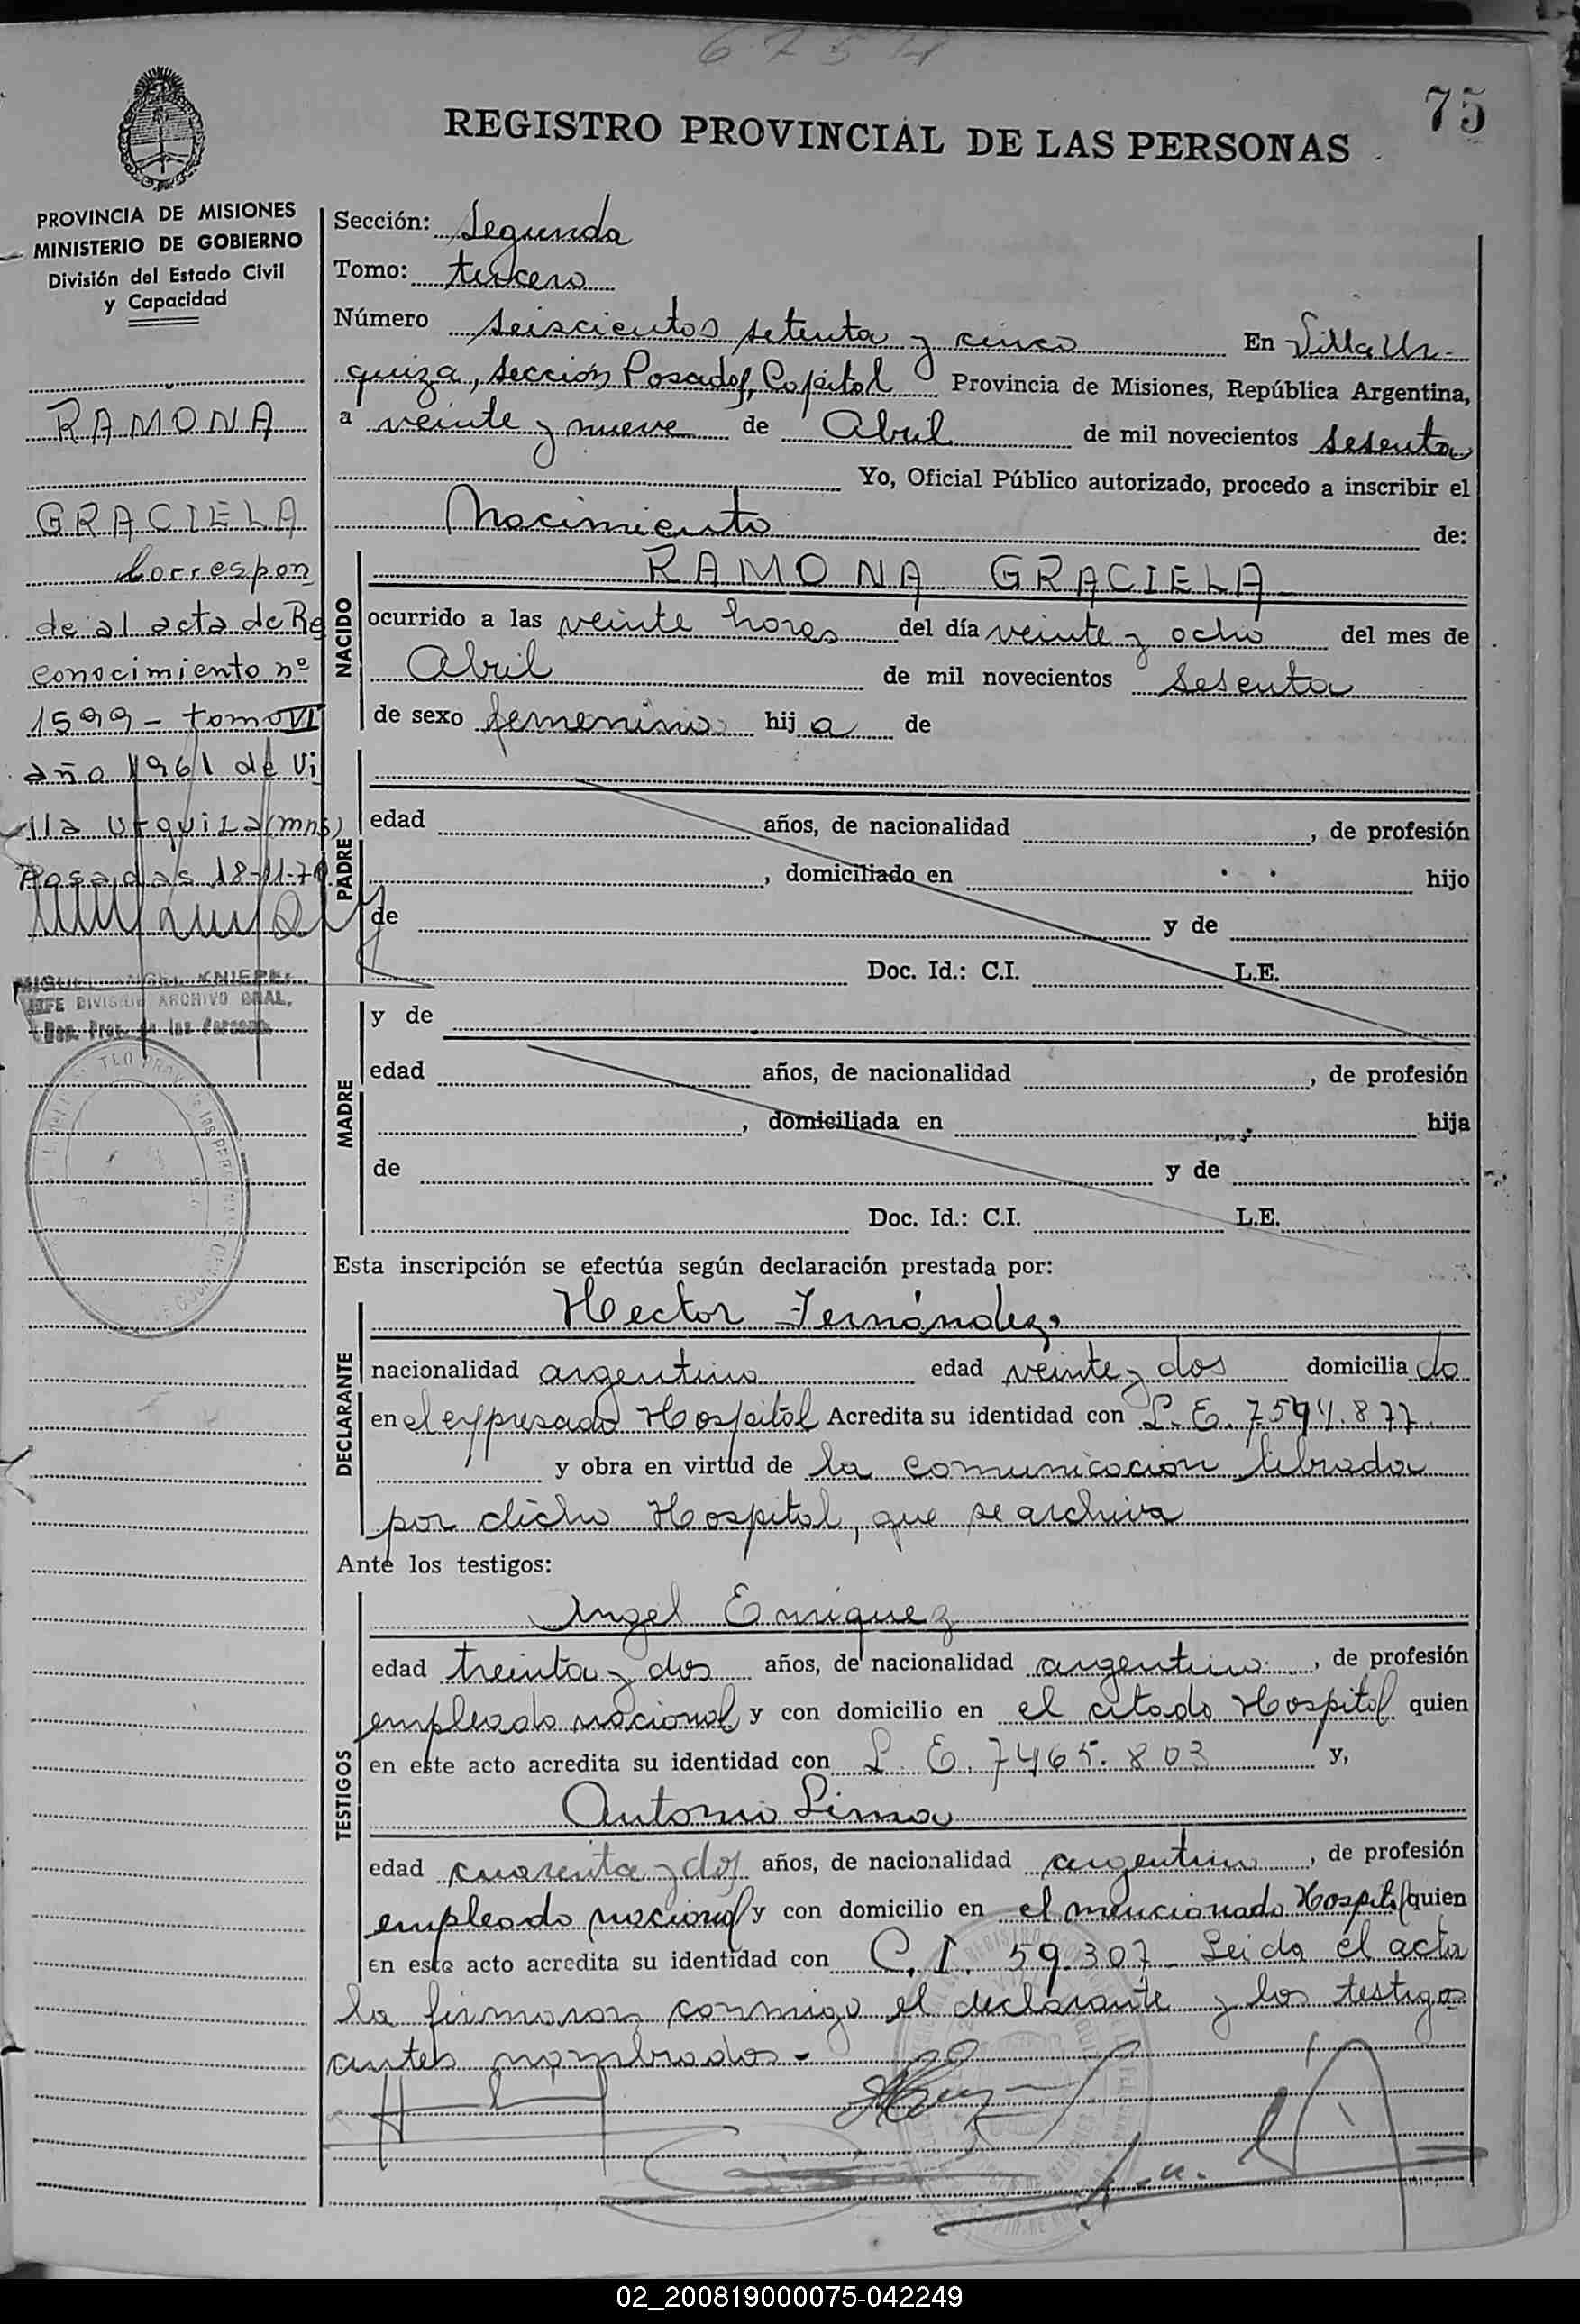 6754
75
REGISTRO PROVINCIAL DE LAS PERSONAS
PROVINCIA DE MISIONES
MINISTERIO DE GOBIERNO
División del Estado Civil
y Capacidad
RAMONA
GRACIELA
Correspon
de al acta de Re
conocimiento nº
1599 - tomo VI
año 1961 de Vi
lla Urquiza (mns)
Posadas 18-11-
JEFE DIVISION ARCHIVO GRAL.
Sección: Segunda
Tomo: tercero
Número seiscientos setenta y cinco En Villa Ur-
quiza, sección Posadas, Capital Provincia de Misiones, República Argentina,
a veinte y nueve de Abril de mil novecientos sesenta
Yo, Oficial Público autorizado, procedo a inscribir el
Nacimiento de:
NACIDO
RAMONA GRACIELA
ocurrido a las veinte horas del día veinte y ocho del mes de
Abril de mil novecientos sesenta
de sexo femenino hija de
PADRE
edad años, de nacionalidad , de profesión
, domiciliado en hijo
de y de
Doc. Id.: C.I. L.E.
MADRE
y de
edad años, de nacionalidad , de profesión
, domiciliada en hija
de y de
Doc. Id.: C.I. L.E.
Esta inscripción se efectúa según declaración prestada por:
DECLARANTE
Hector Fernández
nacionalidad argentino edad veinte y dos domiciliado
en el expresado Hospital Acredita su identidad con L. E. 7594.877
y obra en virtud de la comunicación librada
por dicho Hospital, que se archiva
Ante los testigos:
TESTIGOS
Angel Enriquez
edad treinta y dos años, de nacionalidad argentino, de profesión
empleado nacional y con domicilio en el citado Hospital quien
en este acto acredita su identidad con L. E. 7465.803 y,
Antonio Lima
edad cuarenta y dos años, de nacionalidad argentino, de profesión
empleado nacional y con domicilio en el mencionado Hospital quien
en este acto acredita su identidad con C. I. 59.307 - Leida el acta
la firmaron conmigo el declarante y los testigos
antes nombrados.-
02_200819000075-042249